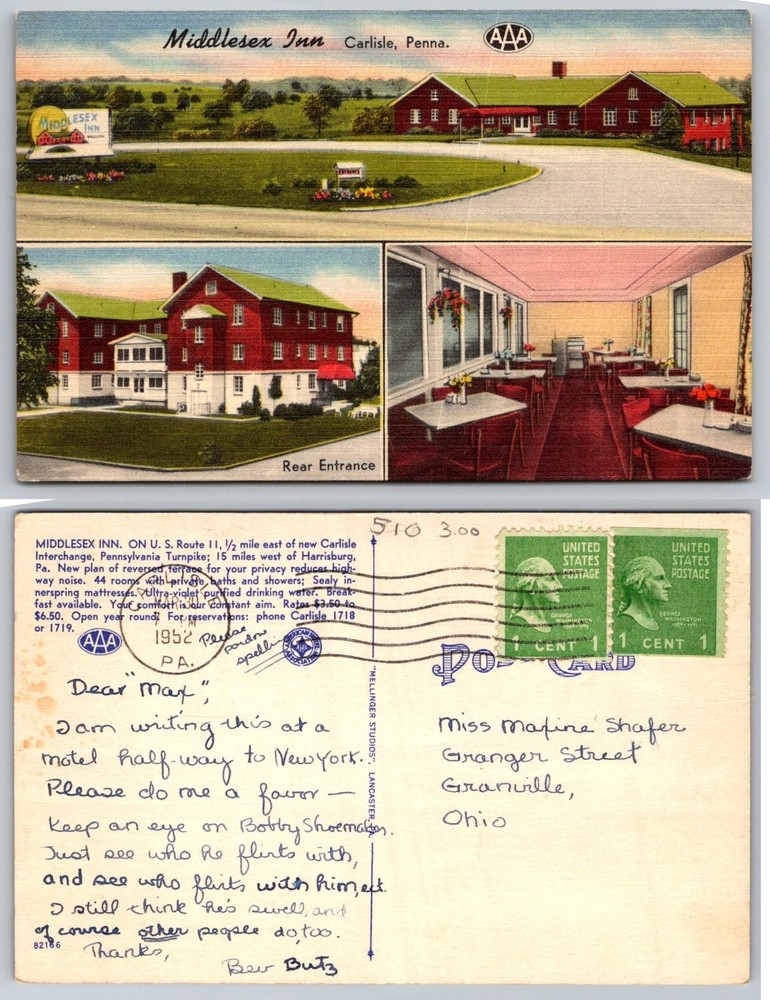 Middlesex Inn Carlisle, Penna. AAA
MIDDLESEX
INN
ENTRANCE
Rear Entrance
510 3.00
MIDDLESEX INN. ON U. S. Route 11, ½ mile east of new Carlisle
Interchange, Pennsylvania Turnpike; 15 miles west of Harrisburg,
Pa. New plan of reversed terrace for your privacy reduces high-
way noise. 44 rooms with private baths and showers; Sealy in-
nerspring mattresses. Ultra-violet purified drinking water. Break-
fast available. Your comfort is our constant aim. Rates $3.50 to
$6.50. Open year round. For reservations: phone Carlisle 1718
or 1719.
AAA
1952
PA.
Please
pardon
spelling
UNITED
STATES
POSTAGE
GEORGE
WASHINGTON
1 CENT 1
UNITED
STATES
POSTAGE
GEORGE
WASHINGTON
1 CENT 1
POST CARD
Dear "Max",
I am writing this at a
motel half-way to New York.
Please do me a favor —
Keep an eye on Bobby Shoemaker.
Just see who he flirts with,
and see who flirts with him, ect.
I still think he's swell, and
of course other people do, too.
Thanks,
Bev Butz
82166
"MELLINGER STUDIOS", LANCASTER, PA.
Miss Maxine Shafer
Granger Street
Granville,
Ohio